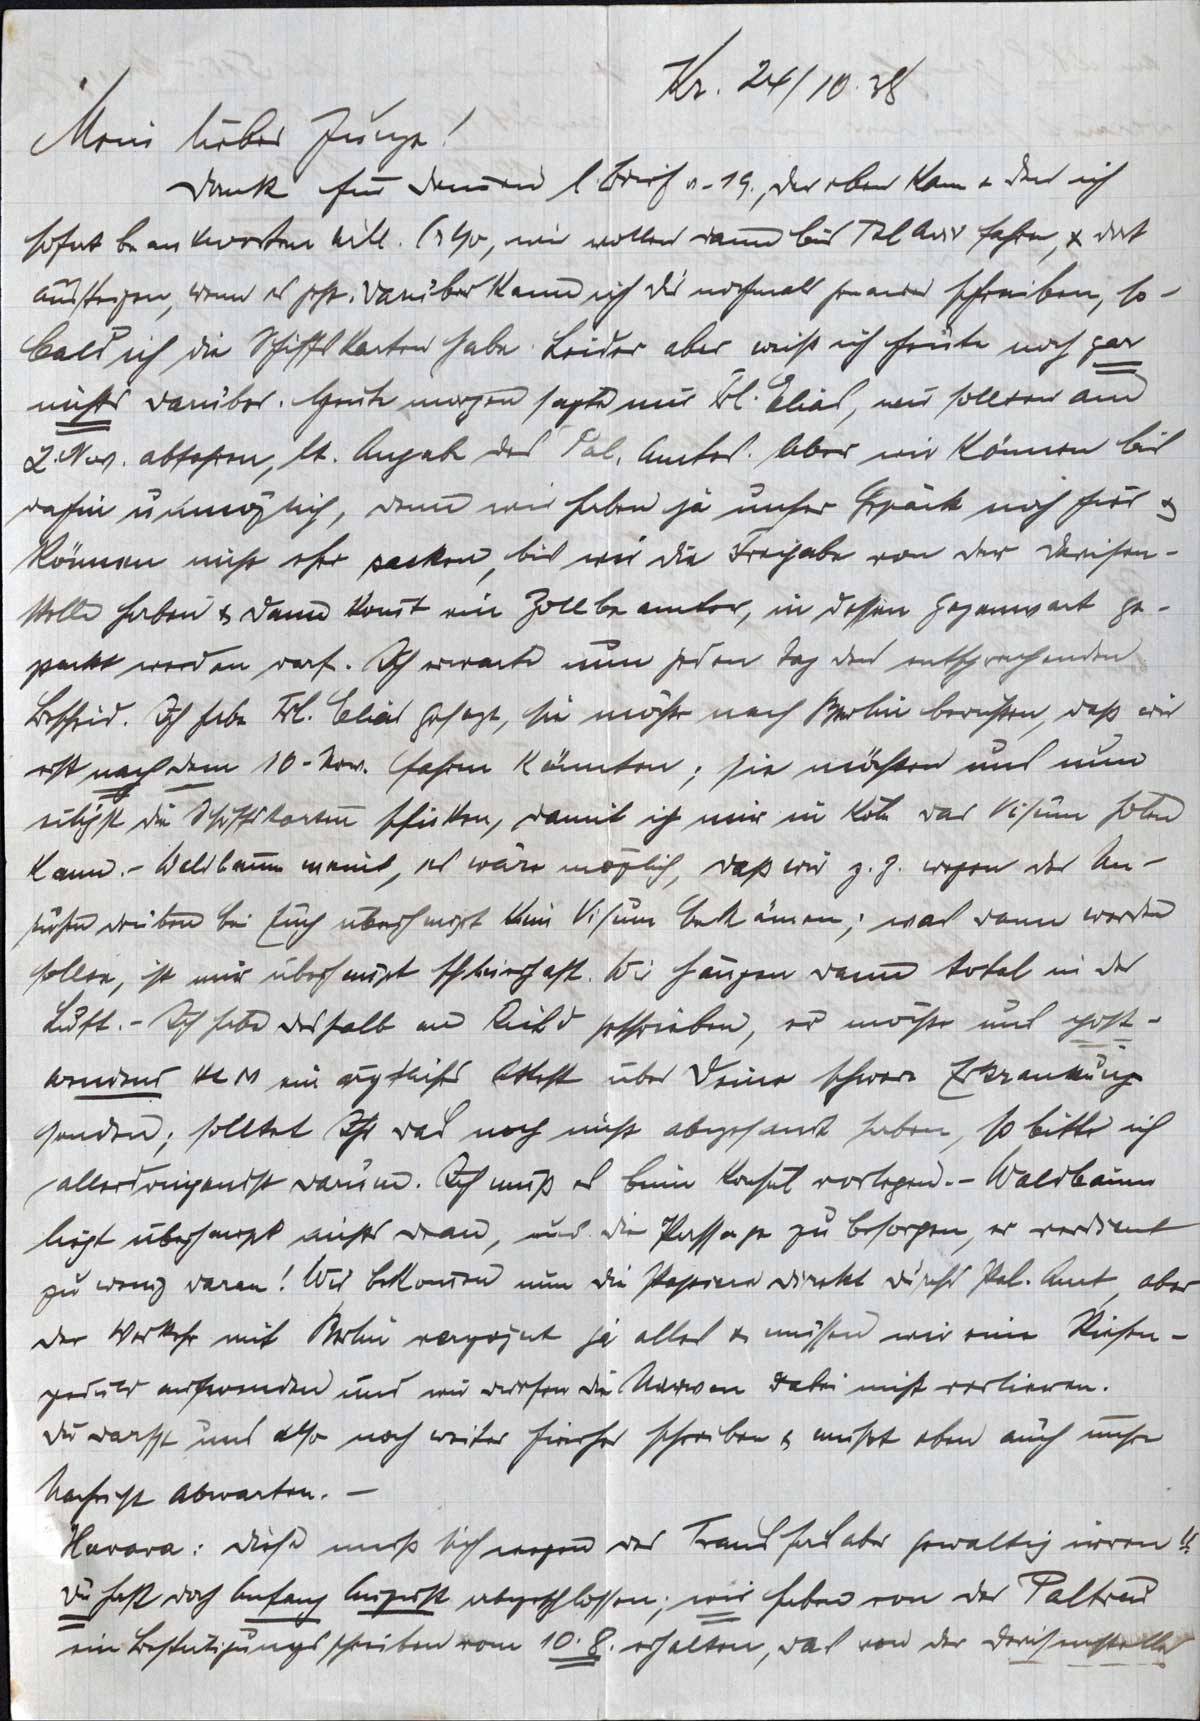 Kr. 24/10.38
Mein lieber Junge!
Dank für Deinen l. Brief v. 19., der eben kam & den ich
sofort beantworten will. Also, wir wollen dann bis Tel Aviv fahren, & dort
aussteigen, wenn es geht. Darüber kann ich Dir nochmals genauer schreiben, so-
bald ich die Schiffskarten habe. Leider aber weiß ich heute noch gar
nichts darüber. Heute morgen sagte mir Frl. Elias, wir sollten am
2. Nov. abfahren, lt. Angabe des Pal. Amtes. Aber wir können bis
dahin unmöglich, denn wir haben ja unser Gepäck noch hier &
können nicht eher packen, bis wir die Freigabe von der Devisen-
stelle haben & dann kommt ein Zollbeamter, in dessen Gegenwart ge-
packt werden darf. Ich erwarte nun jeden Tag den entsprechenden
Bescheid. Ich habe Frl. Elias gesagt, sie möchte nach Berlin berichten, daß wir
erst nach dem 10. Nov. fahren könnten; sie möchten uns nun
eiligst die Schiffskarten schicken, damit ich mir in Köln das Visum holen
kann. - Waldbaum meint, es wäre möglich, daß wir z. Z. wegen der Un-
ruhen drüben bei Euch überhaupt kein Visum bekämen; was dann werden
sollte, ist mir überhaupt schleierhaft. Wir hängen dann total in der
Luft. - Ich habe deshalb an geschrieben, er möchte uns post-
wendend ein ärztliches Attest über Deine schwere Erkrankung
senden; solltet Ihr das noch nicht abgesandt haben, so bitte ich
allerdringendst darum. Ich muß es beim Konsul vorlegen. - Waldbaum
liegt überhaupt nichts dran, uns die Passage zu besorgen, er verdient
zu wenig daran! Wir bekommen nun die Papiere direkt durchs Pal. Amt, aber
der Verkehr mit Berlin verzögert ja alles & müssen wir eine Riesen-
geduld aufwenden und wir dürfen die Nerven dabei nicht verlieren.
Du darfst uns also noch weiter hierher schreiben & mußt eben auch unsre
Nachricht abwarten. -
Haavara: Diese muß sich wegen des Transfers aber gewaltig irren!!
Du hast doch Anfang August abgeschlossen; wir haben von der Paltreu
ein Bestätigungsschreiben vom 10. 8. erhalten, das von der Devisenstelle